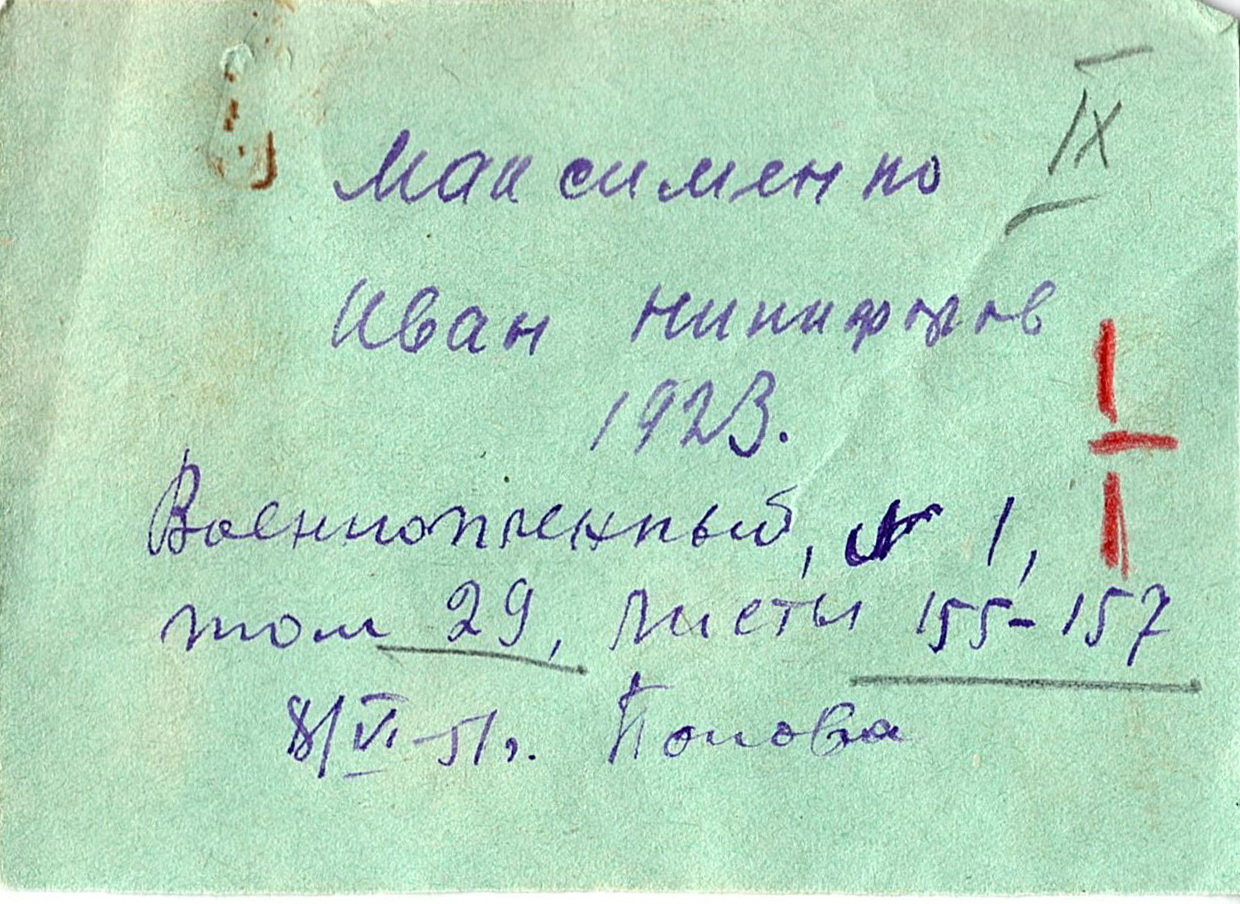 IX
Максименко
Иван Никифоров
1923.
Военнопленный, № 1,
том 29, листы 155-157
8/VI-51г. Попова